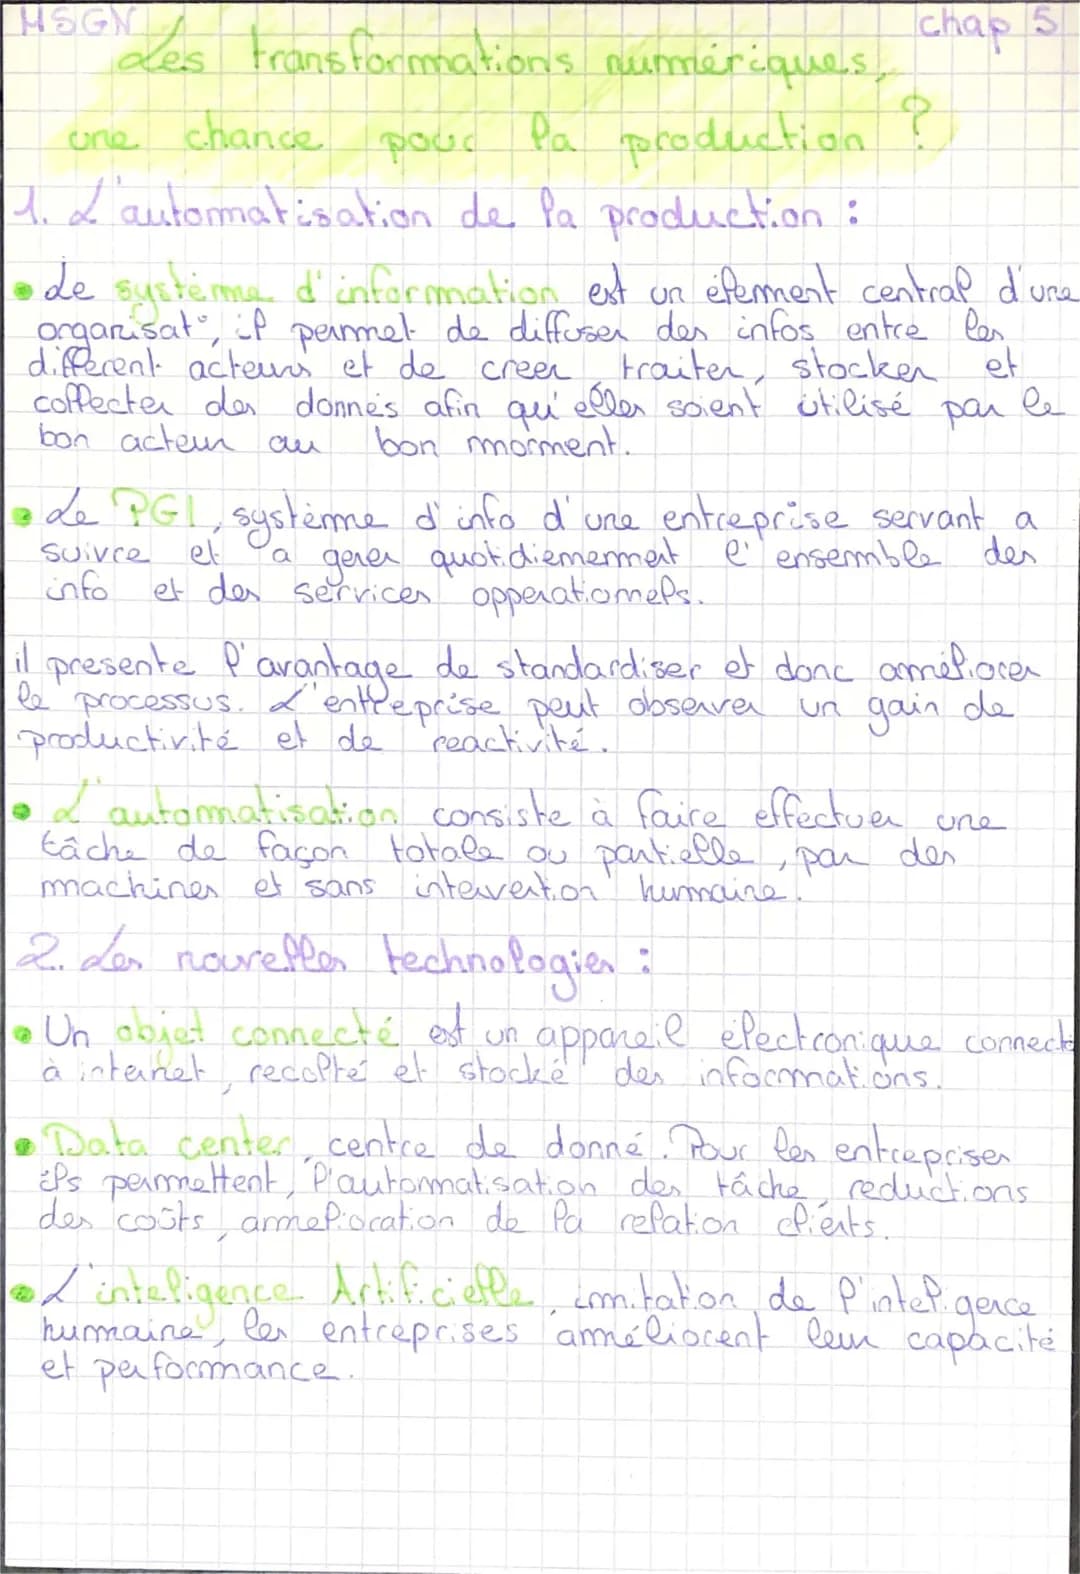 MSGN
chap 5
Les transformations numériques,
une chance pour la production ?
1. L'automatisation de la production :
• Le système d'information est un élement central d'une
organisat°, il permet de diffuser des infos entre les
différent acteurs et de creer traiter, stocker et
collecter des donnés afin qu'elles soient utilisé par le
bon acteur au bon moment.
• Le PGI, système d'info d'une entreprise servant a
suivre et a gerer quotidiennement l'ensemble des
info et des services opperationnels.
il presente l'avantage de standardiser et donc améliorer
le processus. L'entreprise peut observer un gain de
productivité et de reactivité.
• L'automatisation consiste à faire effectuer une
tâche de façon totale ou partielle, par des
machines et sans intervention humaine.
2. Les nouvelles technologies :
• Un objet connecté est un appareil électronique connecté
à internet, recolté et stocké des informations.
• Data center, centre de donné. Pour les entreprises
ils permettent, l'automatisation des tâche, reductions
des coûts, amelioration de la relation clients.
• L'inteligence Artificielle, imitation de l'inteligence
humaine, les entreprises améliorent leur capacité
et performance.